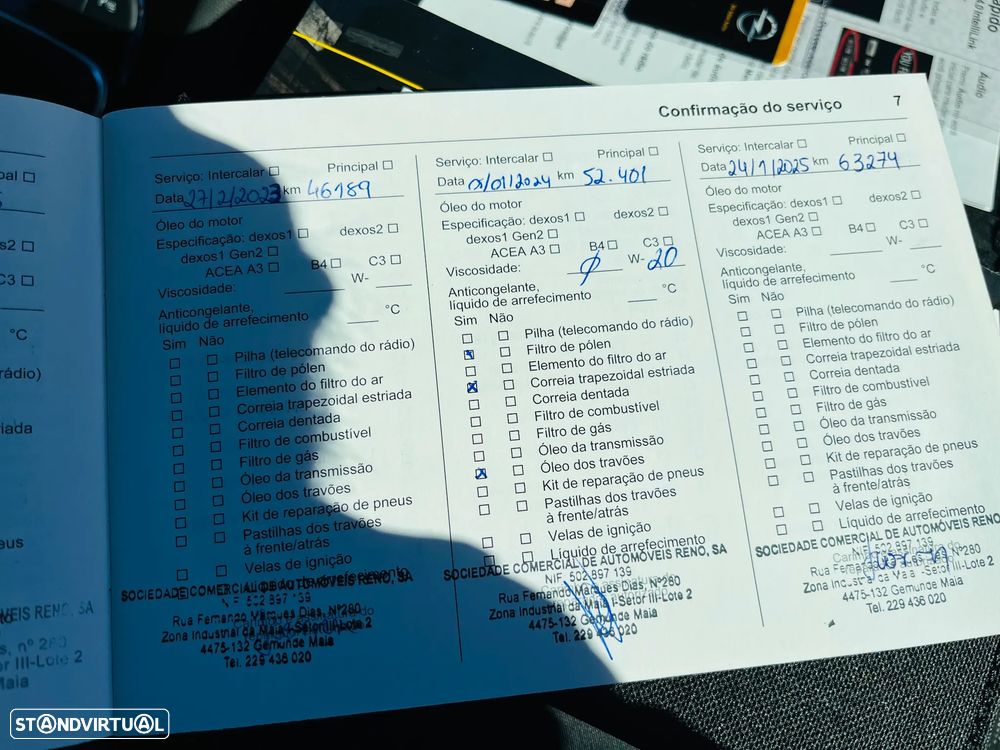 Confirmação do serviço 7
Serviço: Intercalar Principal
Data 27/2/2023 km 46189
Óleo do motor
Especificação: dexos1 dexos2
dexos1 Gen2
ACEA A3 B4 C3
Viscosidade: W-
Anticongelante,
líquido de arrefecimento °C
Sim Não
Pilha (telecomando do rádio)
Filtro de pólen
Elemento do filtro do ar
Correia trapezoidal estriada
Correia dentada
Filtro de combustível
Filtro de gás
Óleo da transmissão
Óleo dos travões
Kit de reparação de pneus
Pastilhas dos travões
à frente/atrás
Velas de ignição
SOCIEDADE COMERCIAL DE AUTOMÓVEIS RENO, SA
NIF 502 897 139
Rua Fernando Marques Dias, Nº280
Zona Industrial da Maia I-Setor III-Lote 2
4475-132 Gemunde Maia
Tel. 229 436 020
Serviço: Intercalar Principal
Data /01/2024 km 52.401
Óleo do motor
Especificação: dexos1 dexos2
dexos1 Gen2
ACEA A3 B4 C3
Viscosidade: 0 W- 20
Anticongelante,
líquido de arrefecimento °C
Sim Não
Pilha (telecomando do rádio)
Filtro de pólen
Elemento do filtro do ar
Correia trapezoidal estriada
Correia dentada
Filtro de combustível
Filtro de gás
Óleo da transmissão
Óleo dos travões
Kit de reparação de pneus
Pastilhas dos travões
à frente/atrás
Velas de ignição
Líquido de arrefecimento
SOCIEDADE COMERCIAL DE AUTOMÓVEIS RENO, SA
NIF 502 897 139
Rua Fernando Marques Dias, Nº280
Zona Industrial da Maia I-Setor III-Lote 2
4475-132 Gemunde Maia
Tel. 229 436 020
Serviço: Intercalar Principal
Data 24/1/2025 km 63274
Óleo do motor
Especificação: dexos1 dexos2
dexos1 Gen2
ACEA A3 B4 C3
Viscosidade: W-
Anticongelante,
líquido de arrefecimento °C
Sim Não
Pilha (telecomando do rádio)
Filtro de pólen
Elemento do filtro do ar
Correia trapezoidal estriada
Correia dentada
Filtro de combustível
Filtro de gás
Óleo da transmissão
Óleo dos travões
Kit de reparação de pneus
Pastilhas dos travões
à frente/atrás
Velas de ignição
Líquido de arrefecimento
SOCIEDADE COMERCIAL DE AUTOMÓVEIS RENO, SA
NIF 502 897 139
Rua Nº280
Zona Industrial da Maia I-Setor III-Lote 2
4475-132 Gemunde Maia
Tel. 229 436 020
STANDVIRTUAL